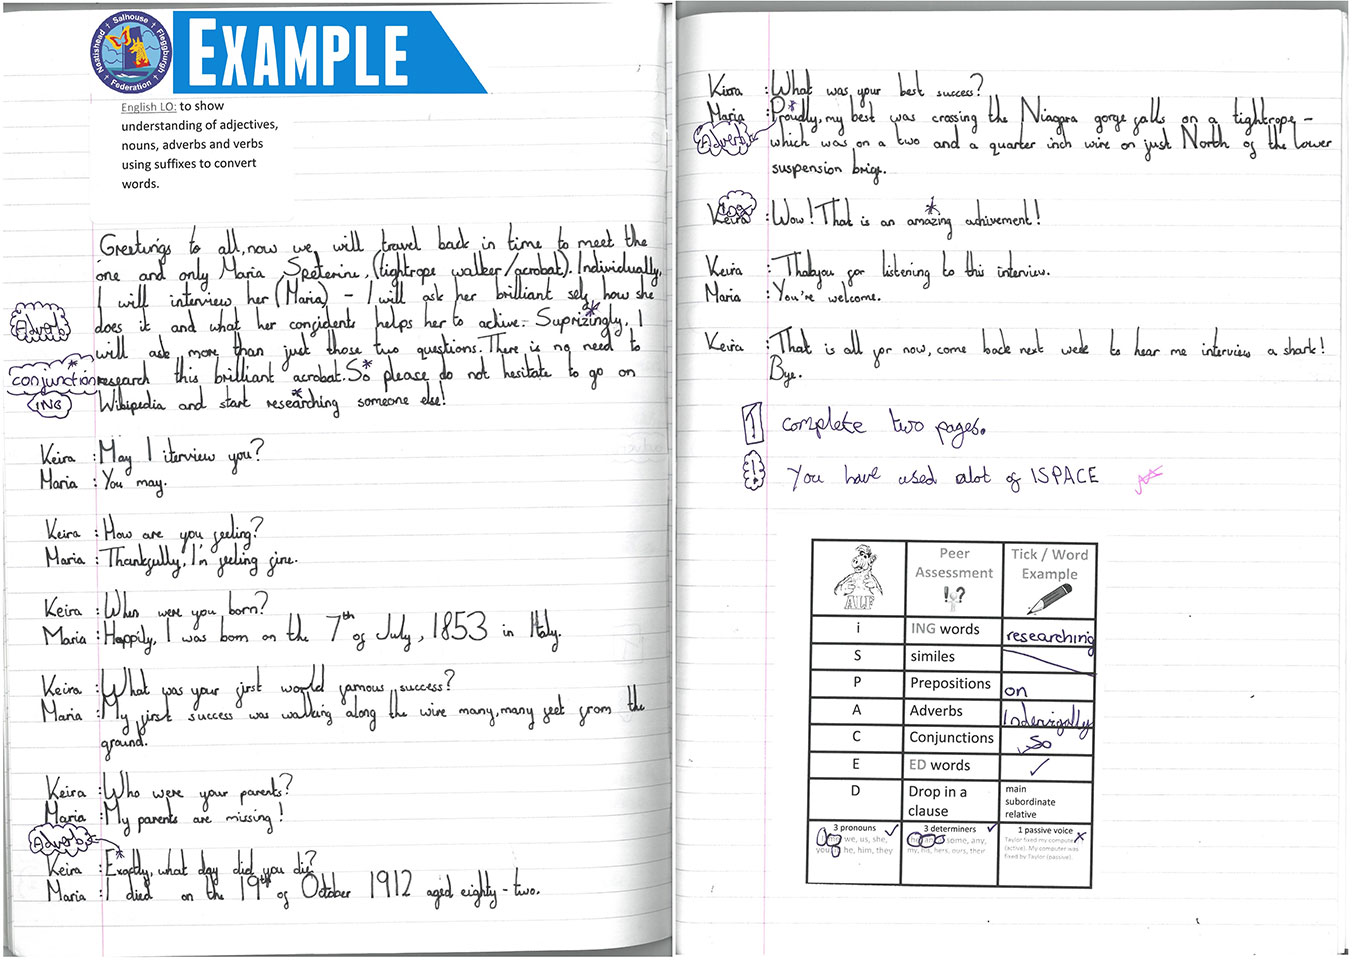 Neatishead † Salhouse † Fleggburgh † Federation †
EXAMPLE
English LO: to show
understanding of adjectives,
nouns, adverbs and verbs
using suffixes to convert
words.
Greetings to all, now we will travel back in time to meet the
one and only Maria Speterine, (tightrope walker/acrobat). Individually,
I will interview her (Maria) - I will ask her brilliant self how she
Adverb
does it and what her confidents helps her to achive. Suprizingly, I
will ask more than just those two questions. There is no need to
conjunction
research this brilliant acrobat. So please do not hesitate to go on
ING
Wikipedia and start researching someone else!
Keira : May I iterview you?
Maria : You may.
Keira : How are you feeling?
Maria : Thankfully, I'm feeling fine.
Keira : When were you born?
Maria : Happily, I was born on the 7th of July, 1853 in Italy.
Keira : What was your first world famous success?
Maria : My first success was walking along the wire many, many feet from the
ground.
Keira : Who were your parents?
Maria : My parents are missing!
Adverbs
Keira : Exaftly, what day did you die?
Maria : I died on the 19th of October 1912 aged eighty-two.
Kiara : What was your best success?
Maria : Proudly, my best was crossing the Niagara gorge falls on a tightrope -
Adverb
which was on a two and a quarter inch wire on just North of the lower
suspension brige.
ing
Keira : Wow! That is an amazing achivement!
Keira : Thakyou for listening to this interview.
Maria : You're welcome.
Keira : That is all for now, come back next week to hear me interview a shark!
Bye.
T complete two pages.
! You have used alot of ISPACE
ALF
Peer Assessment
!?
Tick / Word Example
i ING words researching
S similes
P Prepositions on
A Adverbs Indervigally
C Conjunctions So
E ED words
D Drop in a clause main subordinate relative
3 pronouns
we, us, she,
you, he, him, they
3 determiners
the, some, any,
my, his, hers, ours, their
1 passive voice
Taylor fixed my computer
(active). My computer was
fixed by Taylor (passive).